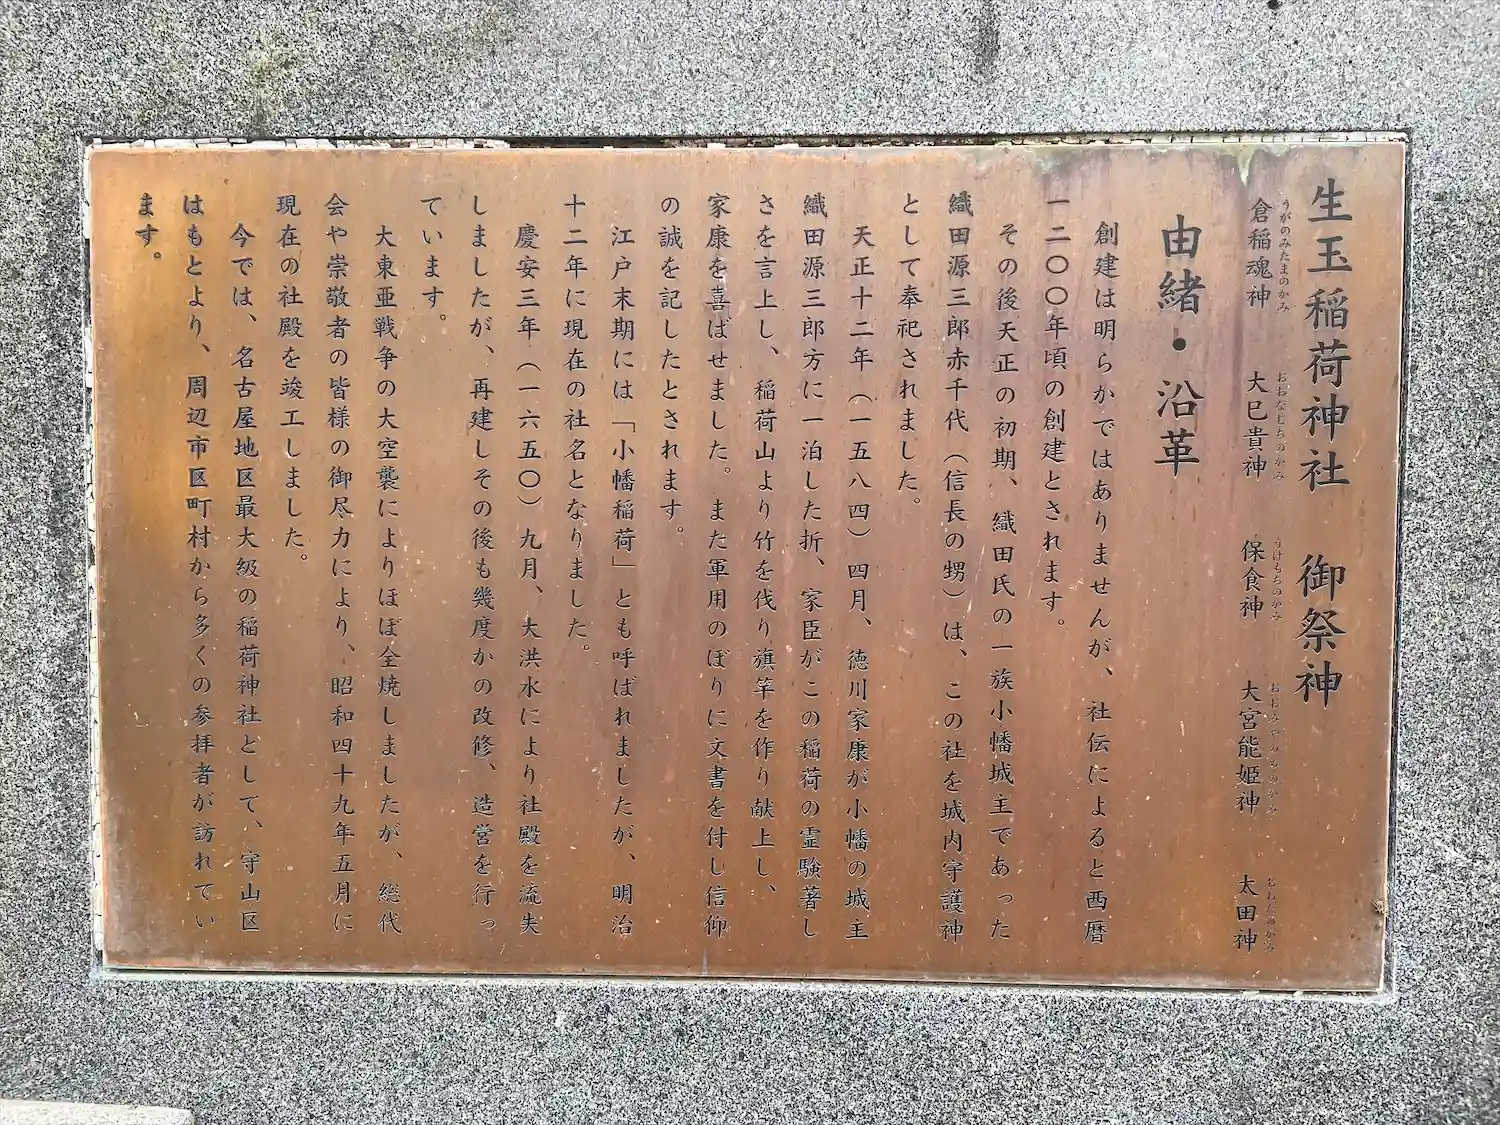 生玉稲荷神社　御祭神
倉稲魂神　大巳貴神　保食神　大宮能姫神　太田神
うがのみたまのかみ　おおなむちのかみ　うけもちのかみ　おおみやのめのかみ　おおたのかみ
由緒・沿革
創建は明らかではありませんが、社伝によると西暦
一二〇〇年頃の創建とされます。
その後天正の初期、織田氏の一族小幡城主であった
織田源三郎赤千代（信長の甥）は、この社を城内守護神
として奉祀されました。
天正十二年（一五八四）四月、徳川家康が小幡の城主
織田源三郎方に一泊した折、家臣がこの稲荷の霊験著し
さを言上し、稲荷山より竹を伐り旗竿を作り献上し、
家康を喜ばせました。また軍用のぼりに文書を付し信仰
の誠を記したとされます。
江戸末期には「小幡稲荷」とも呼ばれましたが、明治
十二年に現在の社名となりました。
慶安三年（一六五〇）九月、大洪水により社殿を流失
しましたが、再建しその後も幾度かの改修、造営を行っ
ています。
大東亜戦争の大空襲によりほぼ全焼しましたが、総代
会や崇敬者の皆様の御尽力により、昭和四十九年五月に
現在の社殿を竣工しました。
今では、名古屋地区最大級の稲荷神社として、守山区
はもとより、周辺市区町村から多くの参拝者が訪れてい
ます。